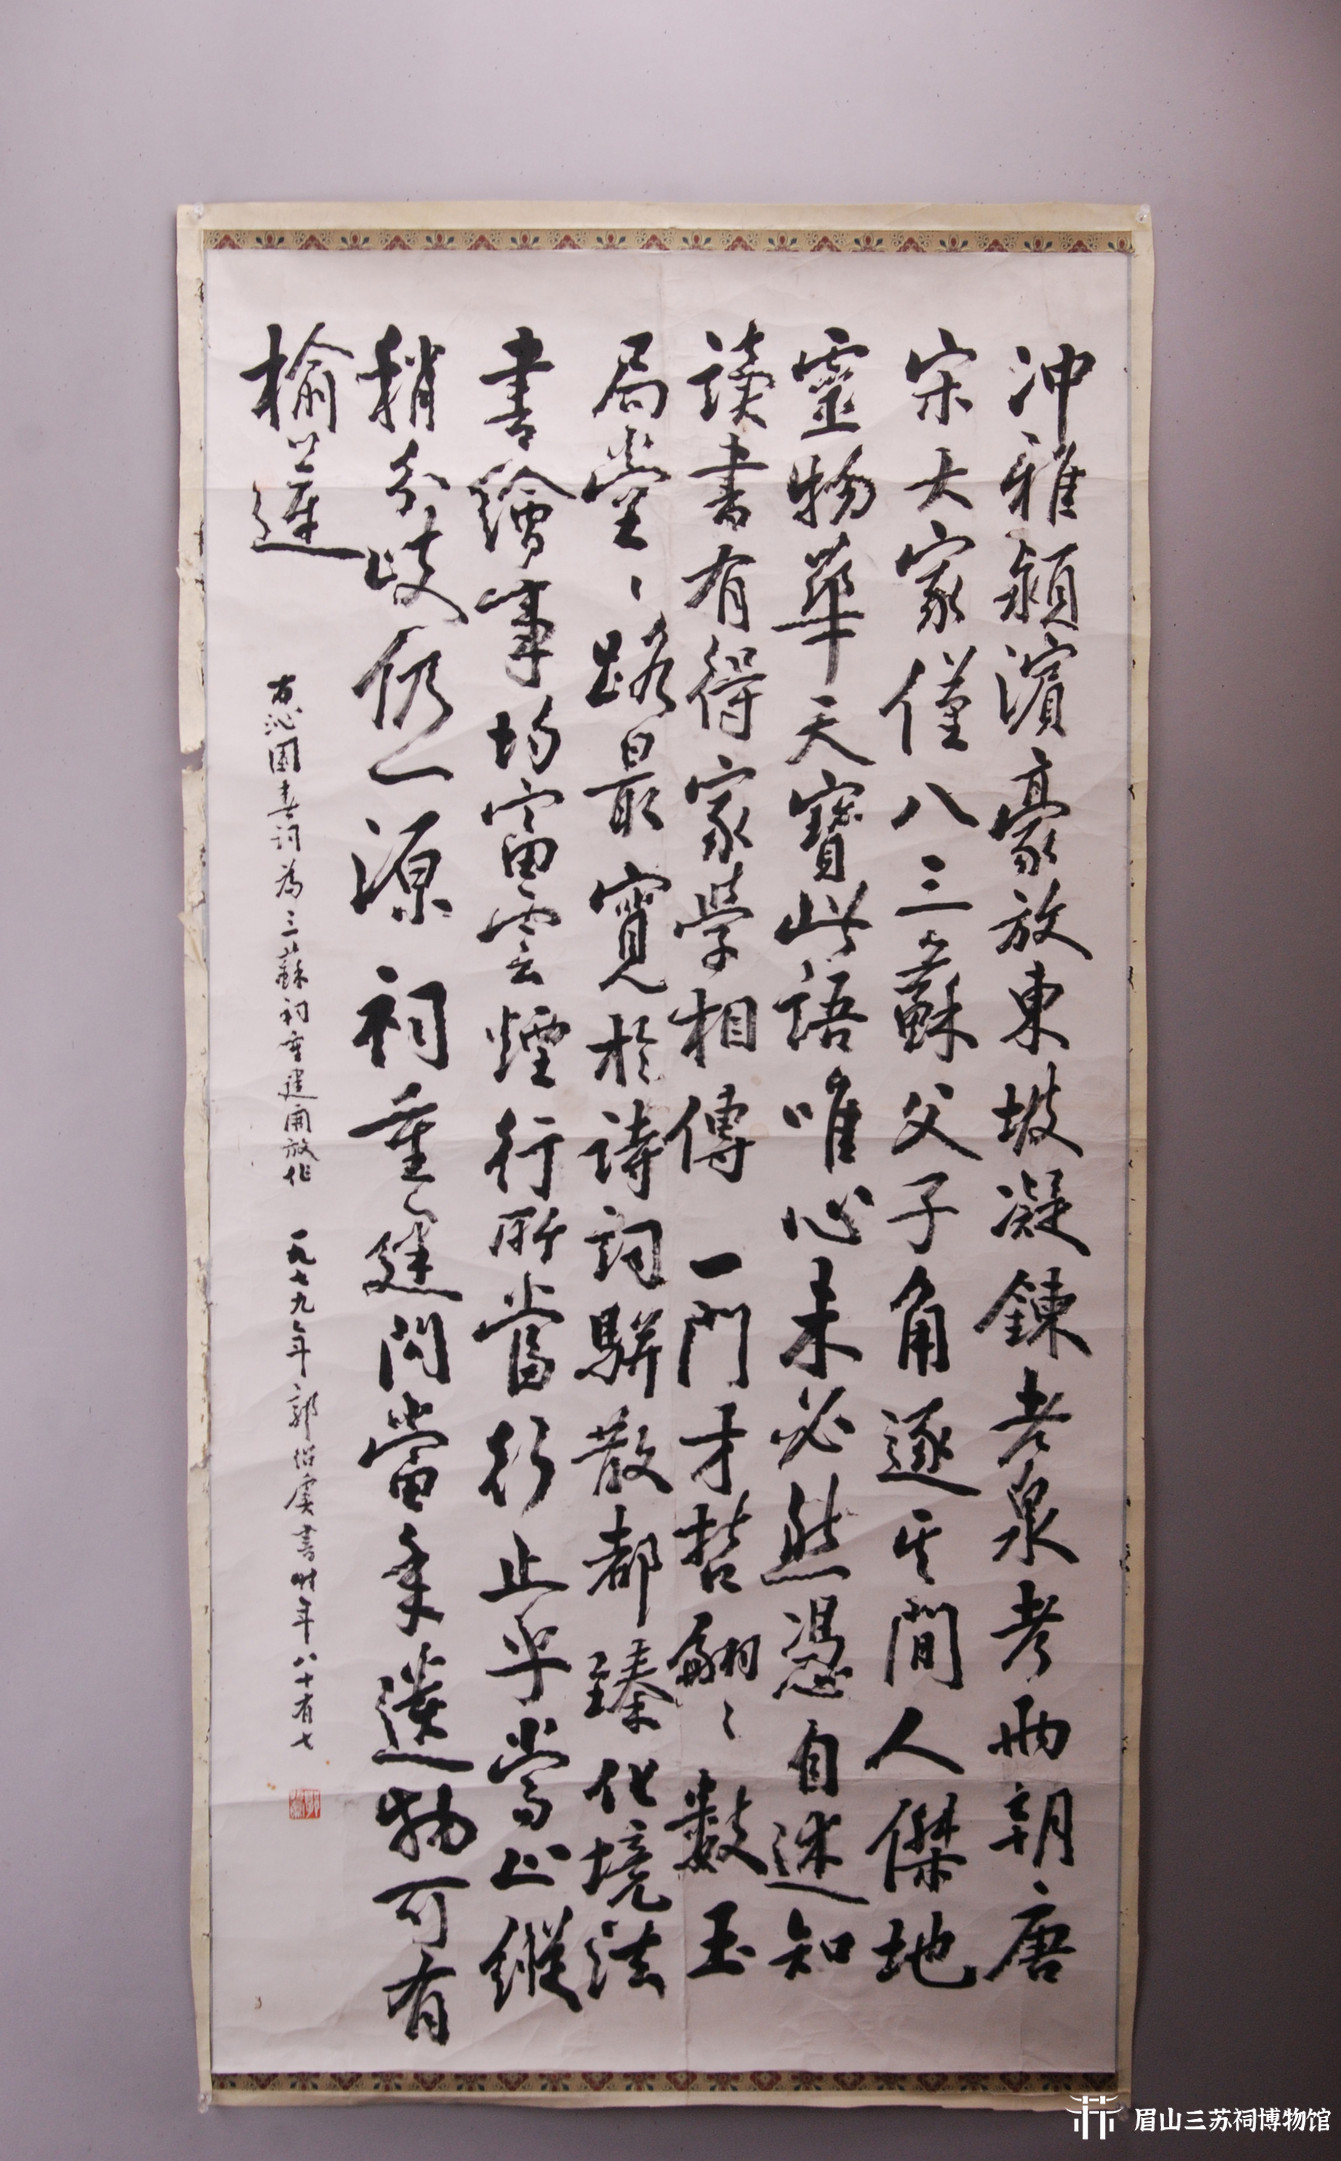 沖雅潁濱豪放東坡凝鍊老泉考兩朝唐
宋大家僅八三蘇父子角逐其間人傑地
靈物華天寶此語唯心未必然憑自述知
讀書有得家學相傳一門才哲翩〻數玉
局堂〻路最寬於詩詞駢散都臻化境法
書繪事均富雲煙行所當行止乎當止縱
稍分歧仍一源祠重建問當年遺物可有
榆蓮
右沁園春詞為三蘇祠重建開放作 一九七九年郭紹虞書時年八十有七
眉山三苏祠博物馆